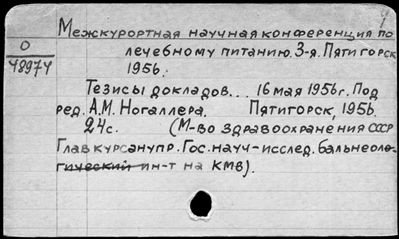 Межкурортная научная конференция по
О
48974
лечебному питанию. 3-я. Пятигорск
1956.
Тезисы докладов... 16 мая 1956г. Под
ред. А.М. Ногаллера. Пятигорск, 1956.
24с. (М-во здравоохранения СССР
Главкурсанупр. Гос. науч-исслед. бальнеоло-
гический ин-т на КМВ).